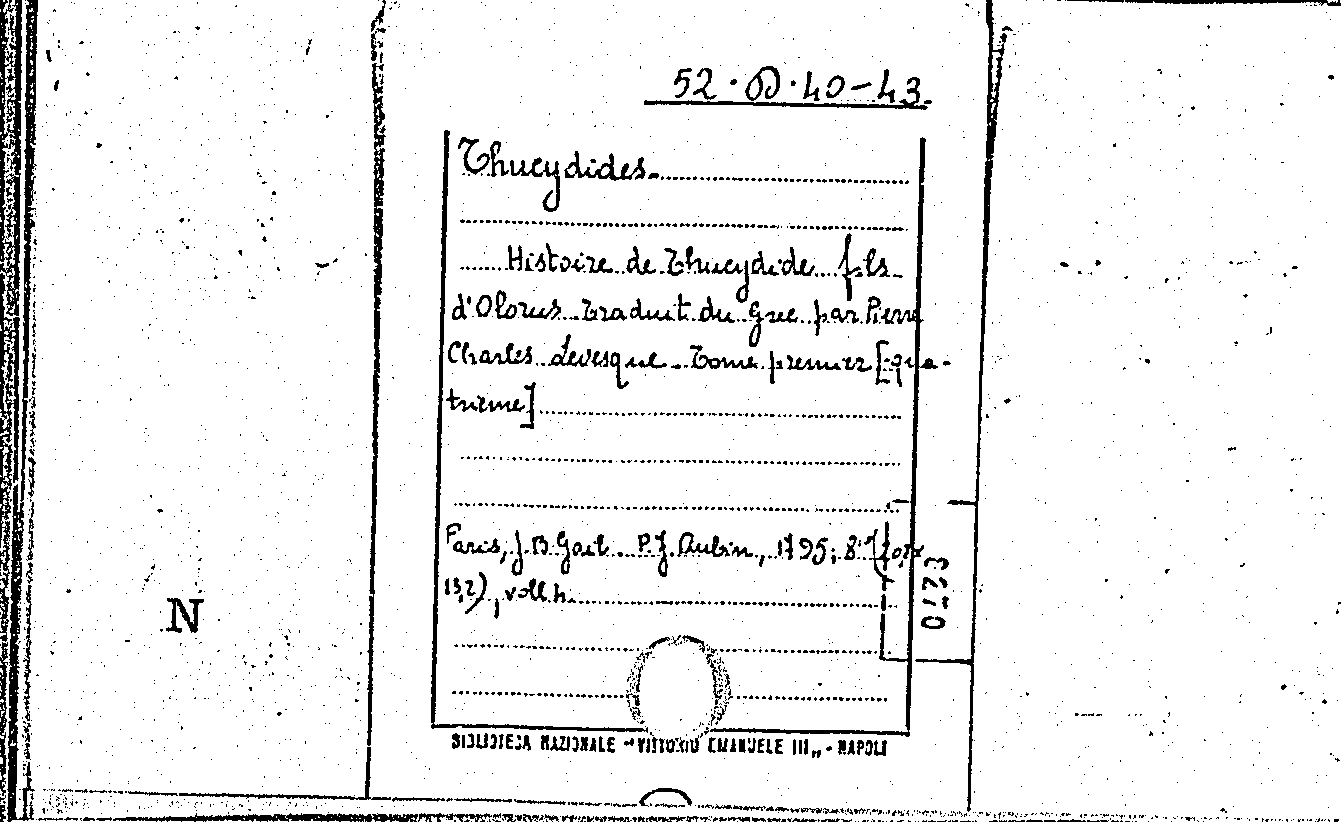 52·D·40-43.
Thucydides.
Histoire de Thucydide fils
d'Olorus. Traduit du Grec par Pierre
Charles Levesque. Tome premier [-qua-
trième]
Paris, J. B. Gail. P. J. Aubin, 1795; 8°
13,2), voll. 4.
0223
N
BIBLIOTECA NAZIONALE "VITTORIO EMANUELE III„ - NAPOLI